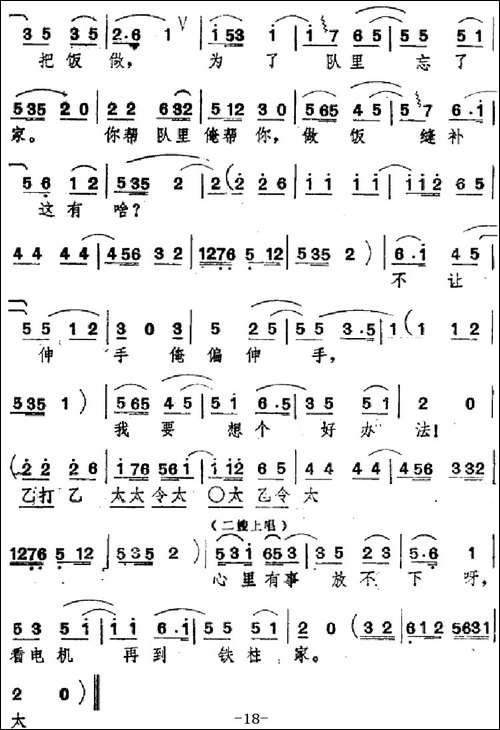 3 5 3 5 | 2·6 1 V | i 53 i | i 7 6 5 | 5 5 5 1
把饭做， 为了队里忘了
535 2 0 | 2 2 632 | 5 12 3 0 | 565 4 5 | 5 7 6·i
家。 你帮队里俺帮你，做饭缝补
5 6 1 2 | 535 2 | 2 (2 2 6 | i i i i | i i2 6 5
这有啥？
4 4 4 4 | 456 3 2 | 1276 5 12 | 535 2 ) | 6·i 4 5
不让
5 5 1 2 | 3 0 3 | 5 2 5 | 5 5 3·5 | 1 ( 1 1 2
伸手俺偏伸手，
535 1 ) | 565 4 5 | 5 i 6·5 | 3 5 5 1 | 2 0
我要想个好办法！
(2 2 2 6 | i76 561 | i i2 6 5 | 4 4 4 4 | 456 332
乙打乙 太太令太 〇太 乙令太
（二嫂上唱）
1276 5 12 | 535 2 ) | 53i 653 | 3 5 2 3 | 5·6 1
心里有事放不下呀，
5 3 5 i | i i 6·i | 5 5 5 1 | 2 0 (3 2 | 612 5631
看电机 再到铁柱家。
2 0 )
太
-18-